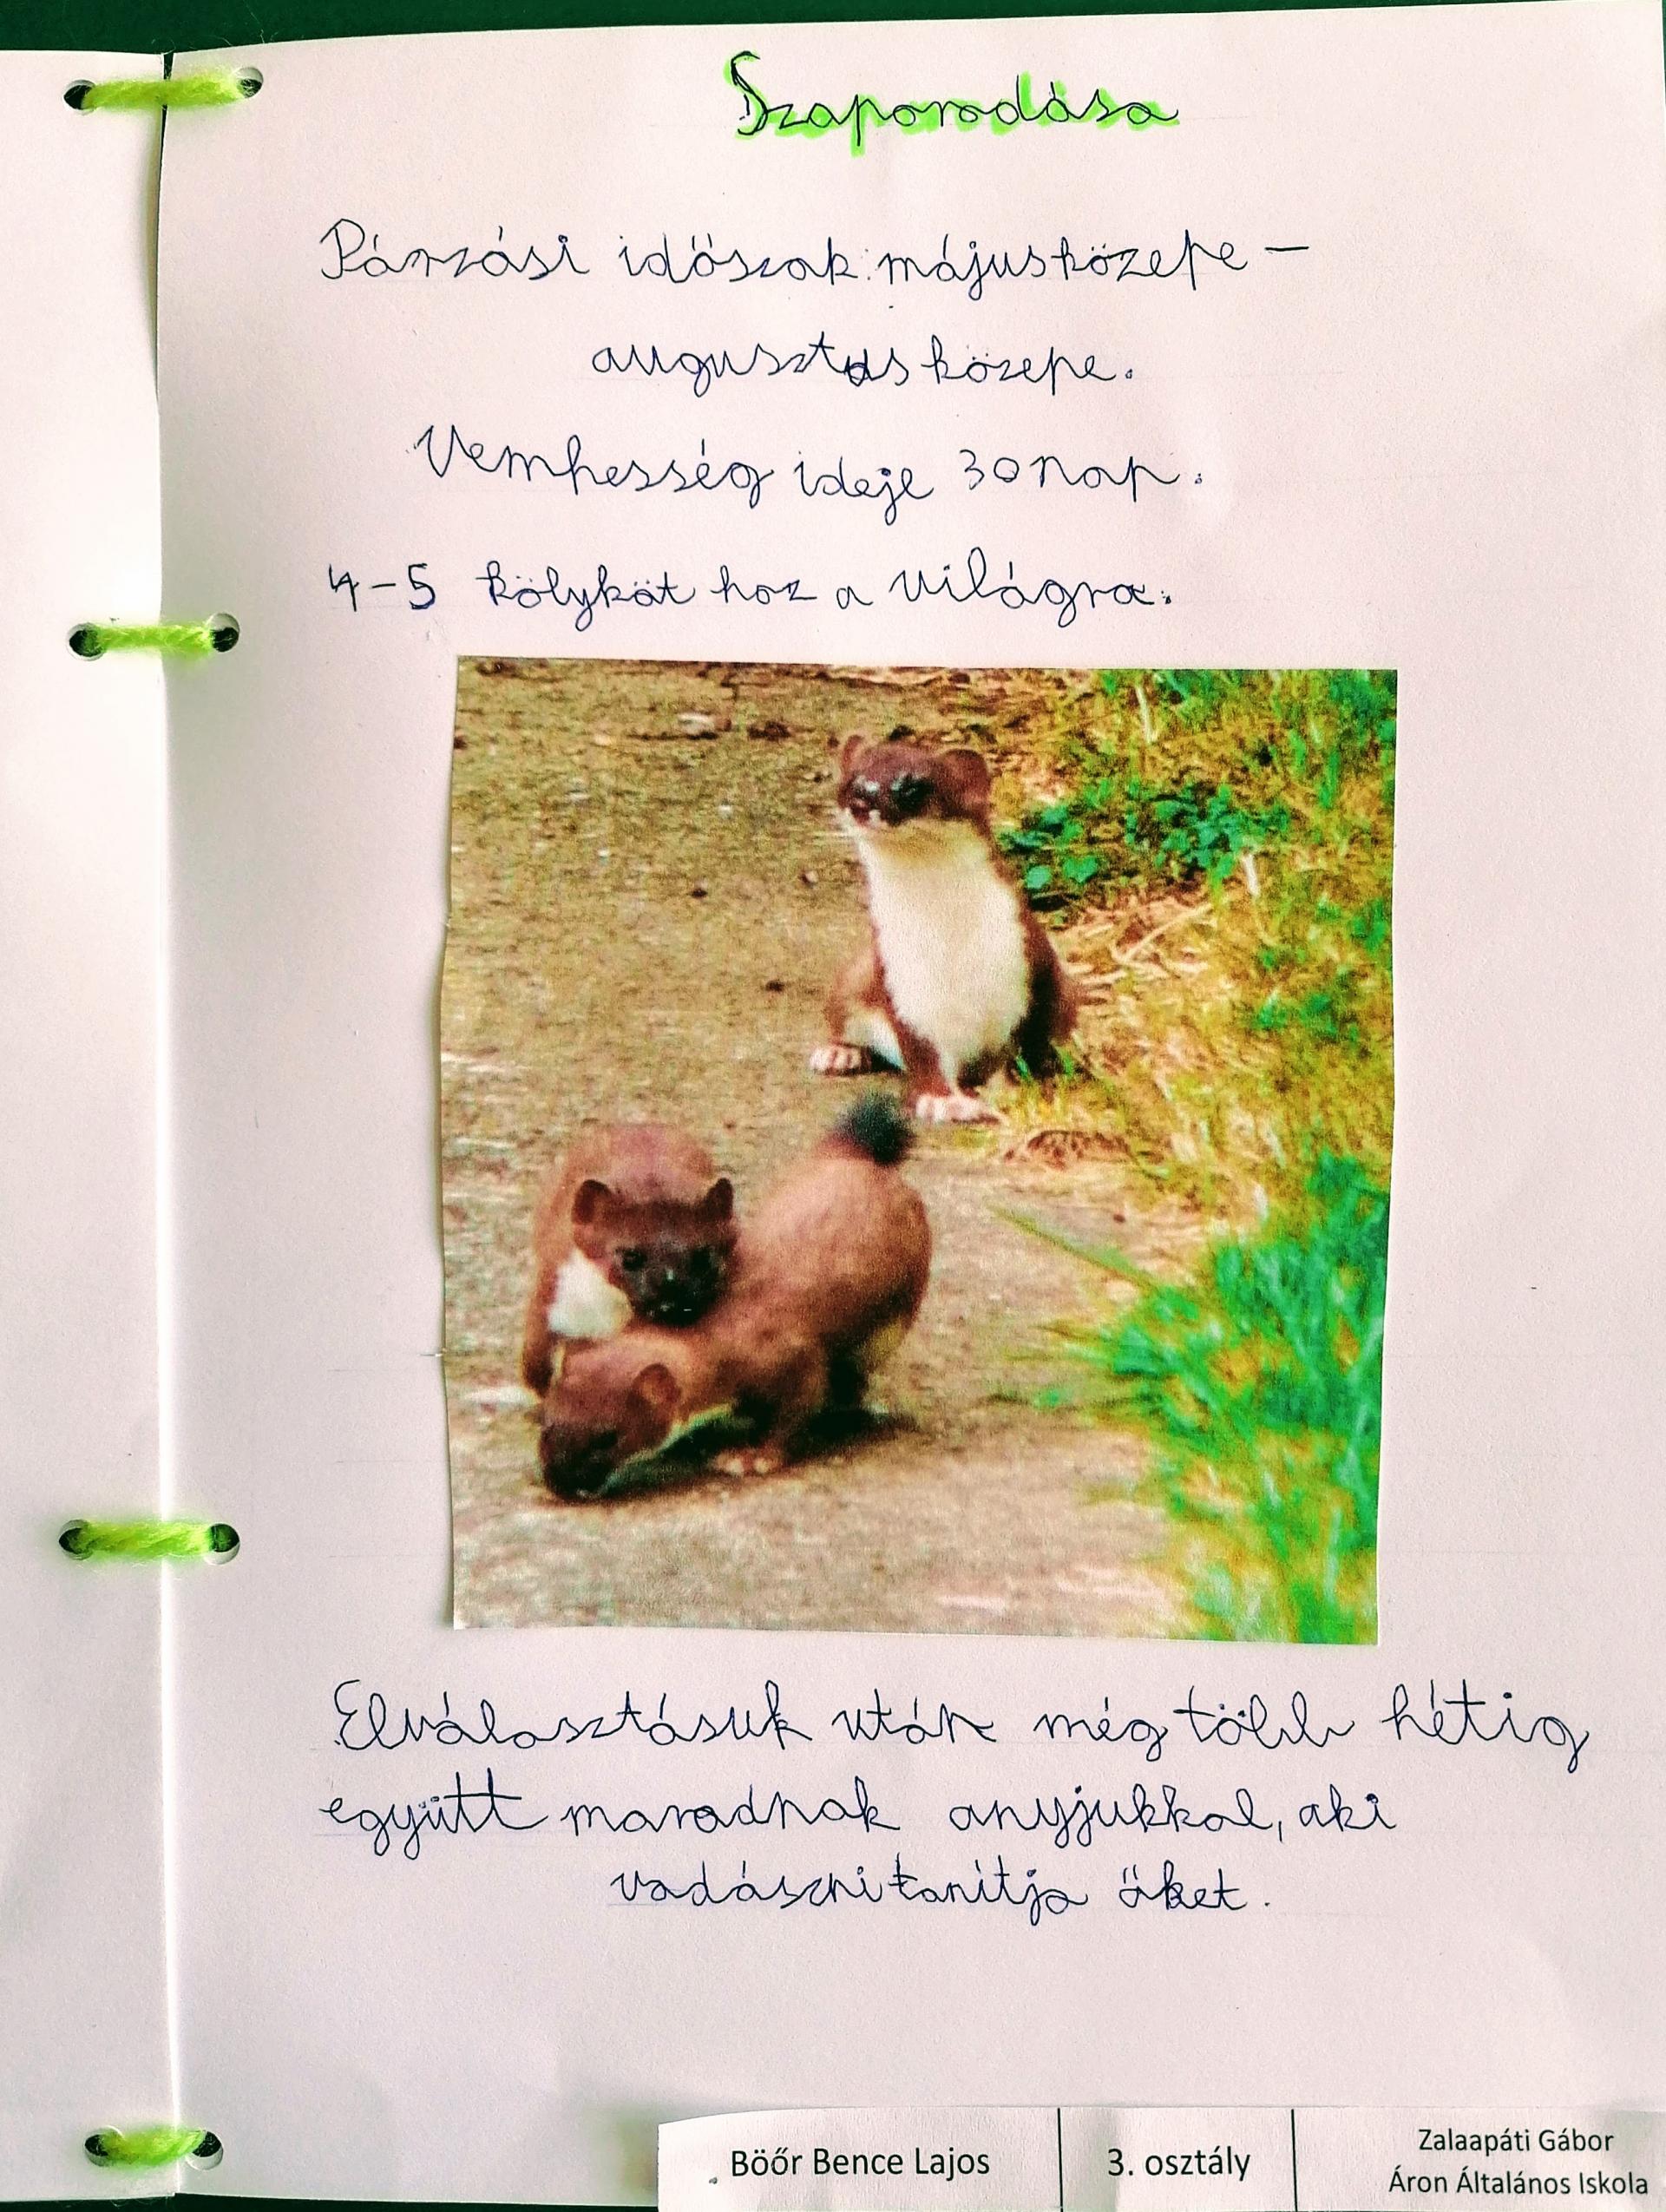 Szaporodása
Párzási időszak: május közepe –
augusztus közepe.
Vemhesség ideje 30 nap.
4-5 kölyköt hoz a világra.
Elválasztásuk után még több hétig
együtt maradnak anyjukkal, aki
vadászni tanítja őket.
Böőr Bence Lajos
3. osztály
Zalaapáti Gábor
Áron Általános Iskola